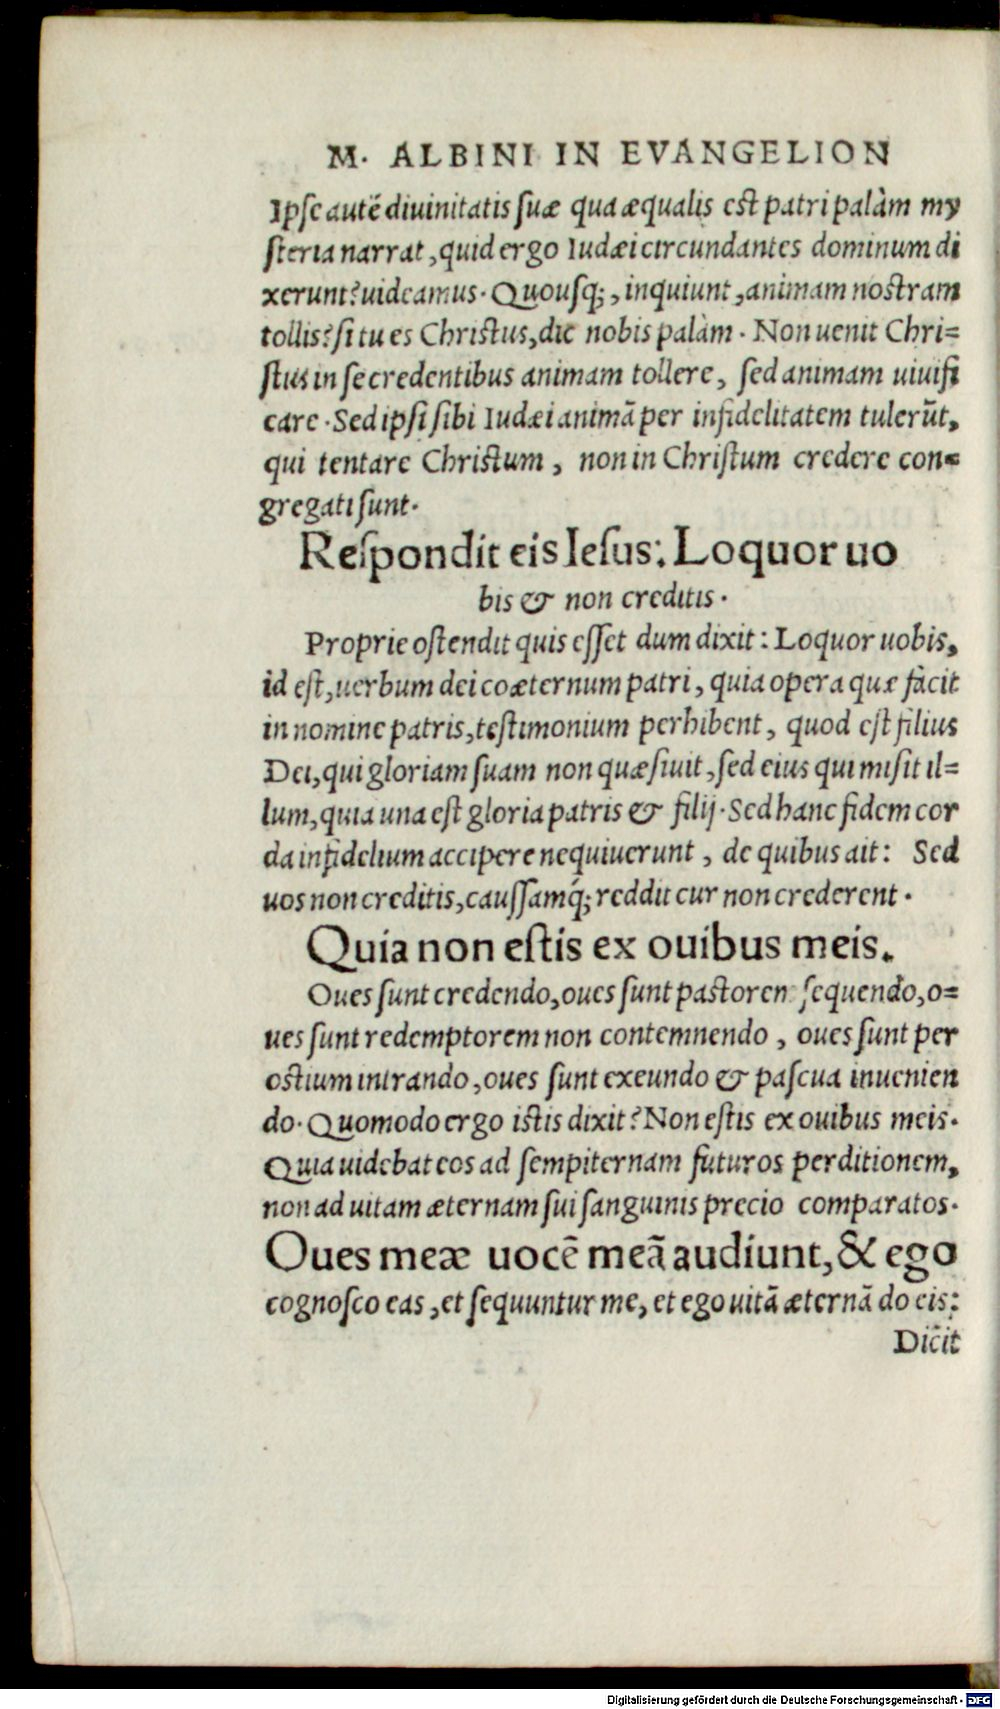 M. ALBINI IN EVANGELION
Ipse autē diuinitatis suæ qua æqualis est patri palàm my
steria narrat, quid ergo Iudæi circundantes dominum di
xerunt? uideamus. Quousq;, inquiunt, animam nostram
tollis? si tu es Christus, dic nobis palàm. Non uenit Chri=
stus in se credentibus animam tollere, sed animam uiuifi
care. Sed ipsi sibi Iudæi animā per infidelitatem tulerūt,
qui tentare Christum, non in Christum credere con=
gregati sunt.
Respondit eis Iesus: Loquor uo
bis & non creditis.
Proprie ostendit quis esset dum dixit: Loquor uobis,
id est, uerbum dei coæternum patri, quia opera quæ facit
in nomine patris, testimonium perhibent, quod est filius
Dei, qui gloriam suam non quæsiuit, sed eius qui misit il=
lum, quia una est gloria patris & filij. Sed hanc fidem cor
da infidelium accipere nequiuerunt, de quibus ait: Sed
uos non creditis, caussamq́; reddit cur non crederent.
Quia non estis ex ouibus meis.
Oues sunt credendo, oues sunt pastorem sequendo, o=
ues sunt redemptorem non contemnendo, oues sunt per
ostium intrando, oues sunt exeundo & pascua inuenien
do. Quomodo ergo istis dixit? Non estis ex ouibus meis.
Quia uidebat eos ad sempiternam futuros perditionem,
non ad uitam æternam sui sanguinis precio comparatos.
Oues meæ uocē meā audiunt, & ego
cognosco eas, et sequuntur me, et ego uitā æternā do eis:
Dicit
Digitalisierung gefördert durch die Deutsche Forschungsgemeinschaft - DFG